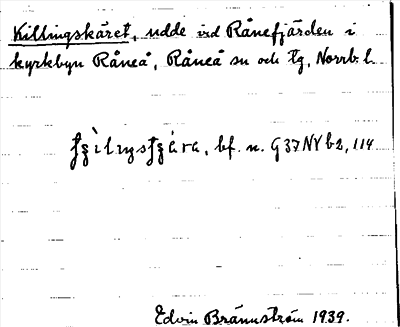 Killingskäret, udde vid Rånefjärden i
kyrkbyn Råneå, Råneå sn och tg, Norrb. l.
bf. n. G37NVb2, 114
Edvin Brännström 1939.